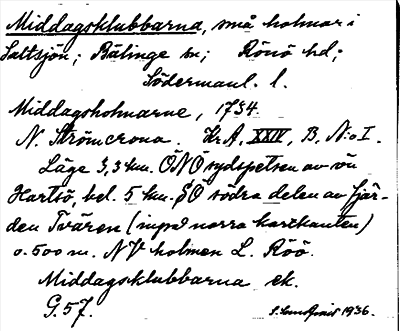 Middagsklubbarna, små holmar i
Saltsjön; Bälinge sn; Rönö hd;
Södermanl. l.
Middagsholmarne, 1734.
N. Strömcrona. Kr.A. XXIV, B, N:o I.
Läge 3,3 km. ÖNÖ sydspetsen av ön
Hartsö, bel. 5 km. SÖ södra delen av fjär-
den Tvären (inpå norra kartkanten)
o. 500 m. NV holmen L. Röö.
Middagsklubbarna ek.
G. 57.
1936.